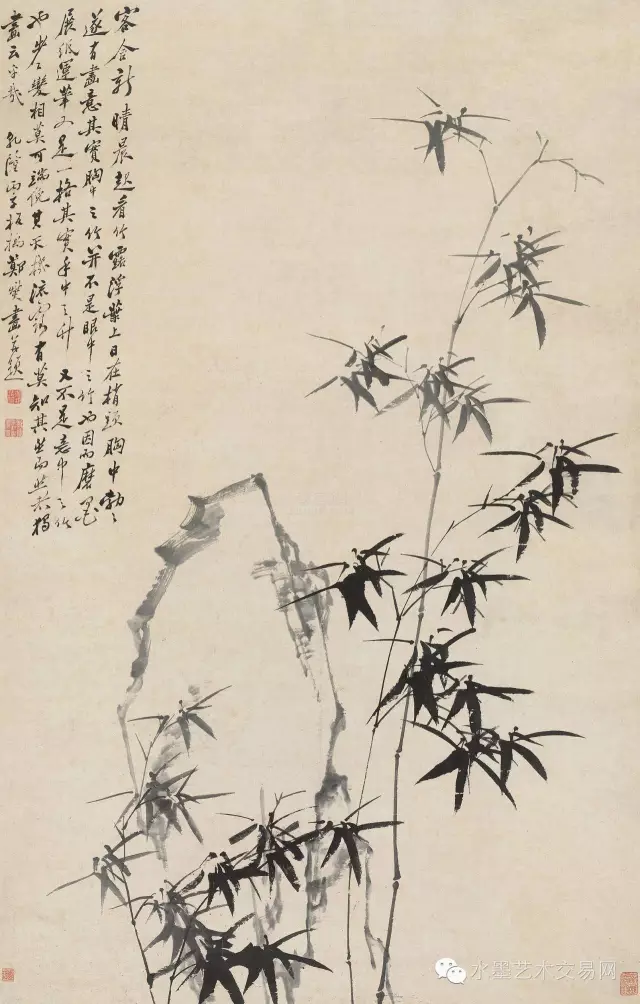 客舍新晴晨起看竹露浮葉上日在梢頭胸中勃々
遂有畫意其實胸中之竹并不是眼中之竹也因而磨墨
展紙運筆又是一格其實手中之竹又不是意中之竹
也步々變相莫可端倪其天機流露有莫知其然而然者獨
畫云乎哉 乾隆丙子板橋鄭燮畫并題
水墨艺术交易网